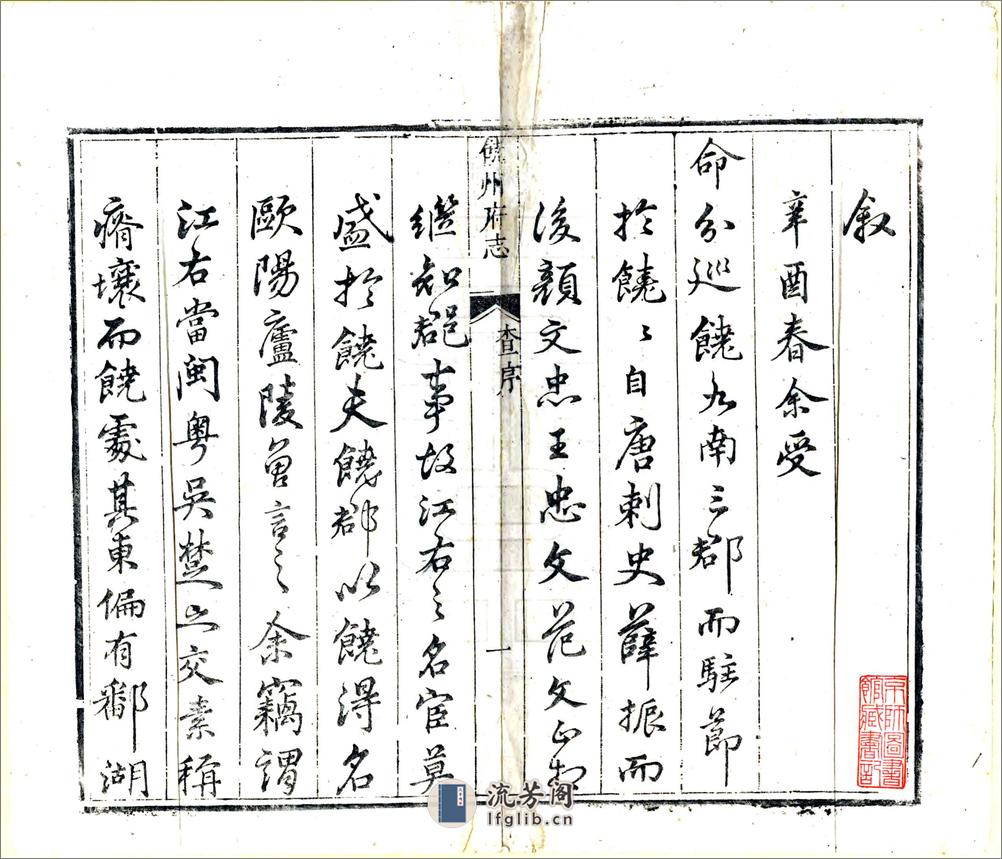 叙
辛酉春余受
命分巡饒九南三郡而駐節
扵饒〻自唐刺史薛振而
後顔文忠王忠文范文正相
繼知郡事故江右之名宦莫
盛扵饒夫饒郡以饒得名
歐陽廬陵曾言之余竊謂
江右當閩粤吳楚之交素稱
瘠壤而饒處其東偏有鄱湖
饒州府志
查序
一
京師圖書
館藏書記
流芳阁
lfglib.cn